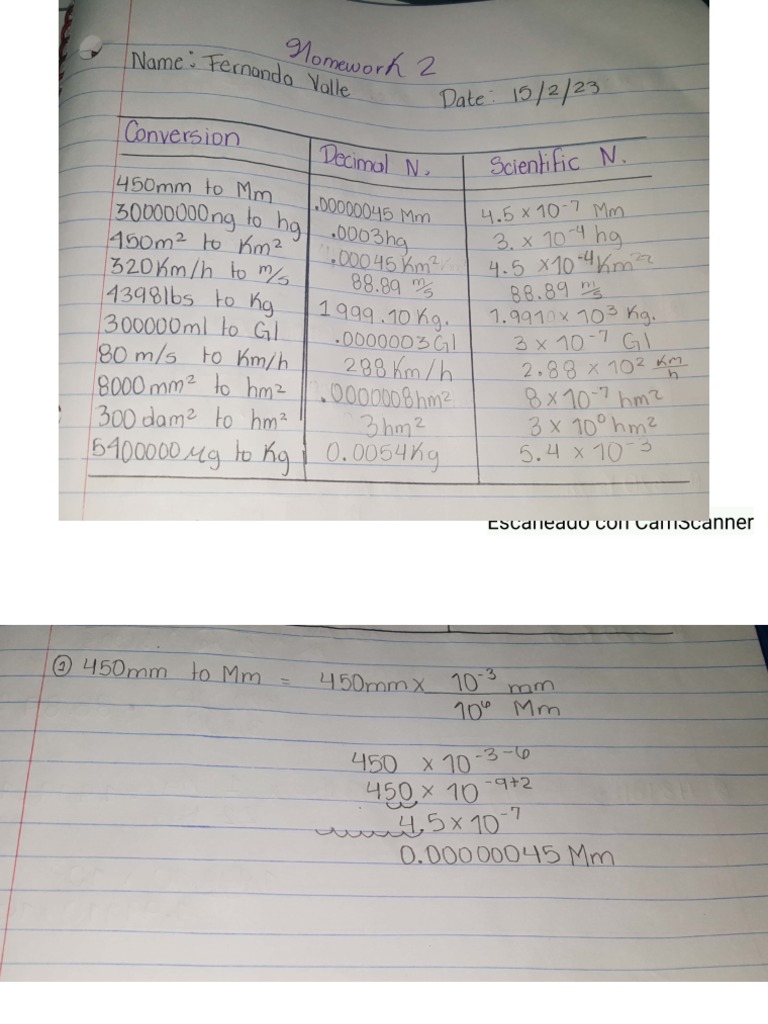 Homework 2
Name: Fernanda Valle
Date: 15/2/23
Conversion Decimal N. Scientific N.
450mm to Mm .00000045 Mm 4.5 x 10⁻⁷ Mm
30000000ng to hg .0003hg 3. x 10⁻⁴ hg
450m² to Km² .00045Km² 4.5 x10⁻⁴Km²
320Km/h to m/s 88.89 m/s 88.89 m/s
4398lbs to Kg 1999.10Kg. 1.9910x 10³ Kg.
300000ml to Gl .0000003Gl 3 x 10⁻⁷ Gl
80 m/s to Km/h 288Km/h 2.88 x 10² Km/h
8000mm² to hm² .0000008hm² 8 x 10⁻⁷ hm²
300 dam² to hm² 3hm² 3 x 10⁰hm²
5400000 µg to Kg 0.0054Kg 5.4 x 10⁻³
Escaneado con CamScanner
① 450mm to Mm = 450mm x 10⁻³ mm
10⁶ Mm
450 x 10⁻³⁻⁶
450 x 10⁻⁹⁺²
4.5 x 10⁻⁷
0.00000045 Mm